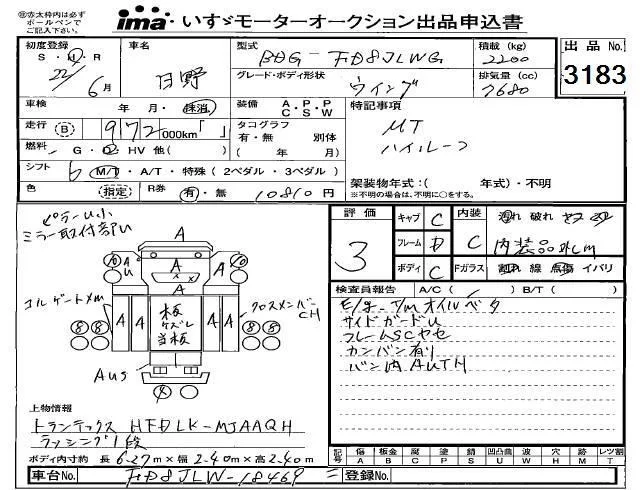 ㊟赤太枠内は必ず
ボールペンで
ご記入下さい。
ima・いすゞモーターオークション出品申込書
初度登録 S・H・R 22年 6月
車名 日野
型式 BDG-FD8JLWG
積載(kg) 2200
出品No. 3183
グレード・ボディ形状 ウイング
排気量(cc) 7680
車検 年・月・抹消
装備 A・P・P C・S・W
特記事項
MT
ハイルーフ
走行 B 972,000km「 」
タコグラフ 有・無 別体 ( 年 月)
燃料 G・D HV 他( )
シフト 6 M/T・A/T・特殊(2ペダル・3ペダル)
架装物年式:( 年式)・不明
※不明の場合は、年明に○をする。
色 (指定) R券 有・無 10810円
ピラーU小
ミラー取付部U
コルゲートm
クロスメンバーCH
板
ケズレ
当板
Aus
評価 3
キャブ C
フレーム D
ボディ C
内装 C
汚れ 破れ
内装品外しm
Fガラス 割れ 線 点傷 イバリ
検査員報告 A/C( ) B/T( )
E/g-T/mオイルベタ
サイドガードU
フレームSCヤセ
カンバン有り
バン内AUTH
上物情報
トランテックス HFDLK-MJAAQH
ラッシング1段
ボディ内寸約 長6.27m×幅2.40m×高2.40m
記号 傷 A 板金 B 腐 C 塗 P 錆 S 凹凸曲 U 波 W 穴 H 跡 M レツ割 T
車台No. FD8JLW-18469
登録No.